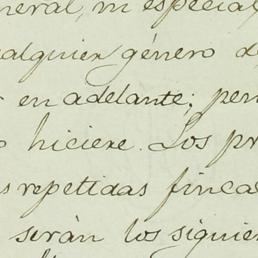 neral, ni especial
alquier género d
en adelante; per
hiciere. Los pr
s repetidas finca
serán los siguie